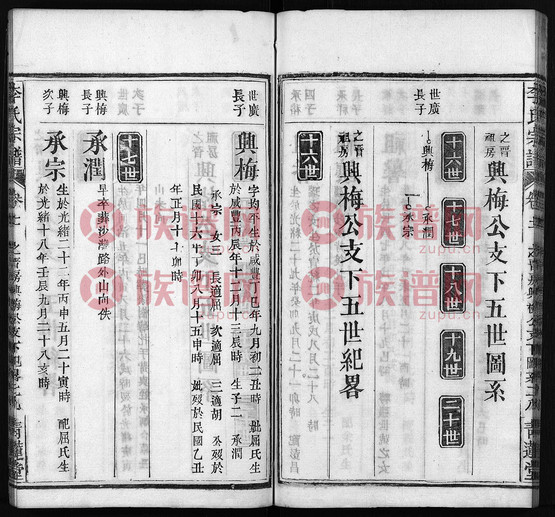 之晋祖房
興梅公支下五世圖系
十六世 十七世 十八世 十九世 二十世
世廣長子
興梅
承潤
承宗
之晋祖房
興梅公支下五世紀畧
十六世
世廣長子
興梅
字均平生於咸豐丁巳年九月初二丑時 妣屈氏生
於咸豐丙辰年十二月十三辰時 生子二 承潤
承宗 女三 長適屈 次適屈 三適胡 公歿於
民國十六年丁卯八月十五申時 妣歿於民國乙丑
年正月十八卯時
十七世
興梅長子
承潤
早卒葬沙灣路外山尚佚
興梅次子
承宗
生於光緒二十二年丙申五月二十寅時 配屈氏生
於光緒十八年壬辰九月二十八亥時
李氏宗譜
青蓮堂
族譜网
zupu.cn